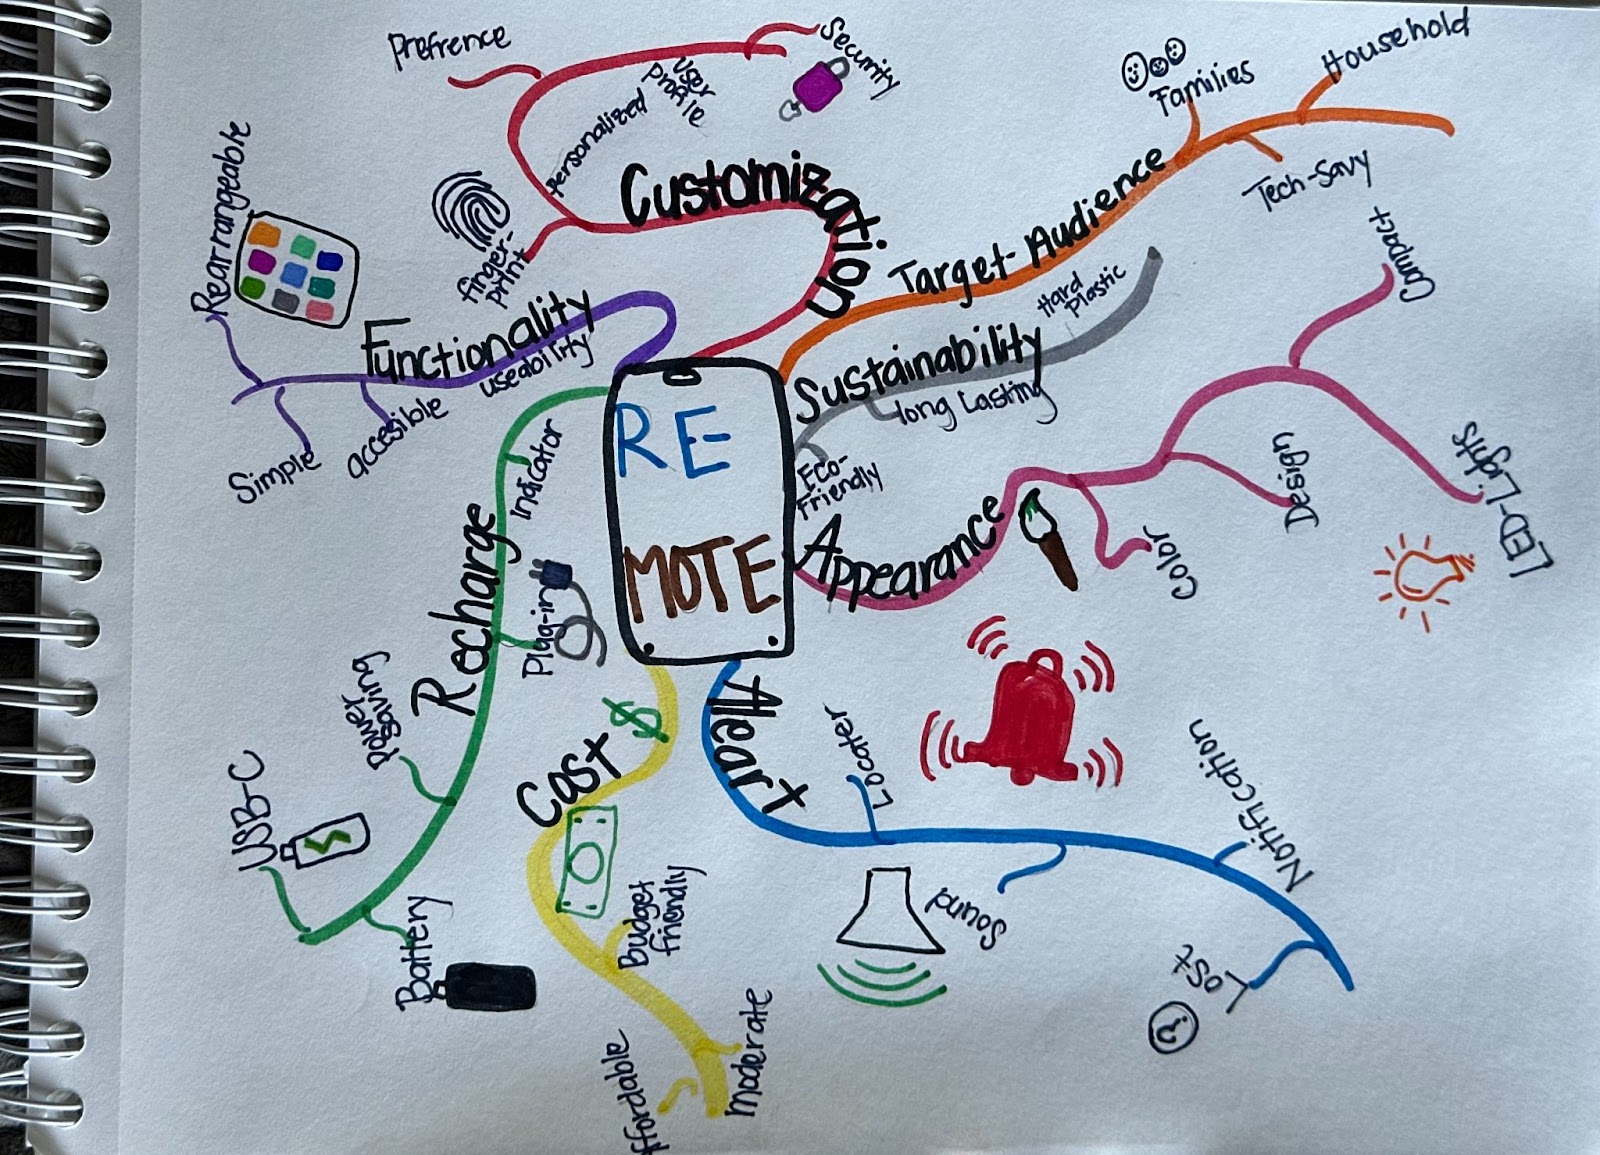 RE
MOTE
Customization
Prefrence
Personalized
User
Profile
Security
finger-
Print
Target-Audience
Families
Household
Tech-Savy
Sustainability
Hard
Plastic
long Lasting
Eco-
Friendly
Appearance
Compact
Design
Color
LED-Lights
Aleart
Locater
Sound
Notification
Lost
Cost
$
Budget
friendly
Moderate
ffordable
Recharge
Indicator
Plug-in
Power
saving
USB-C
Battery
Functionality
useability
Rearrangeable
Simple
accesible